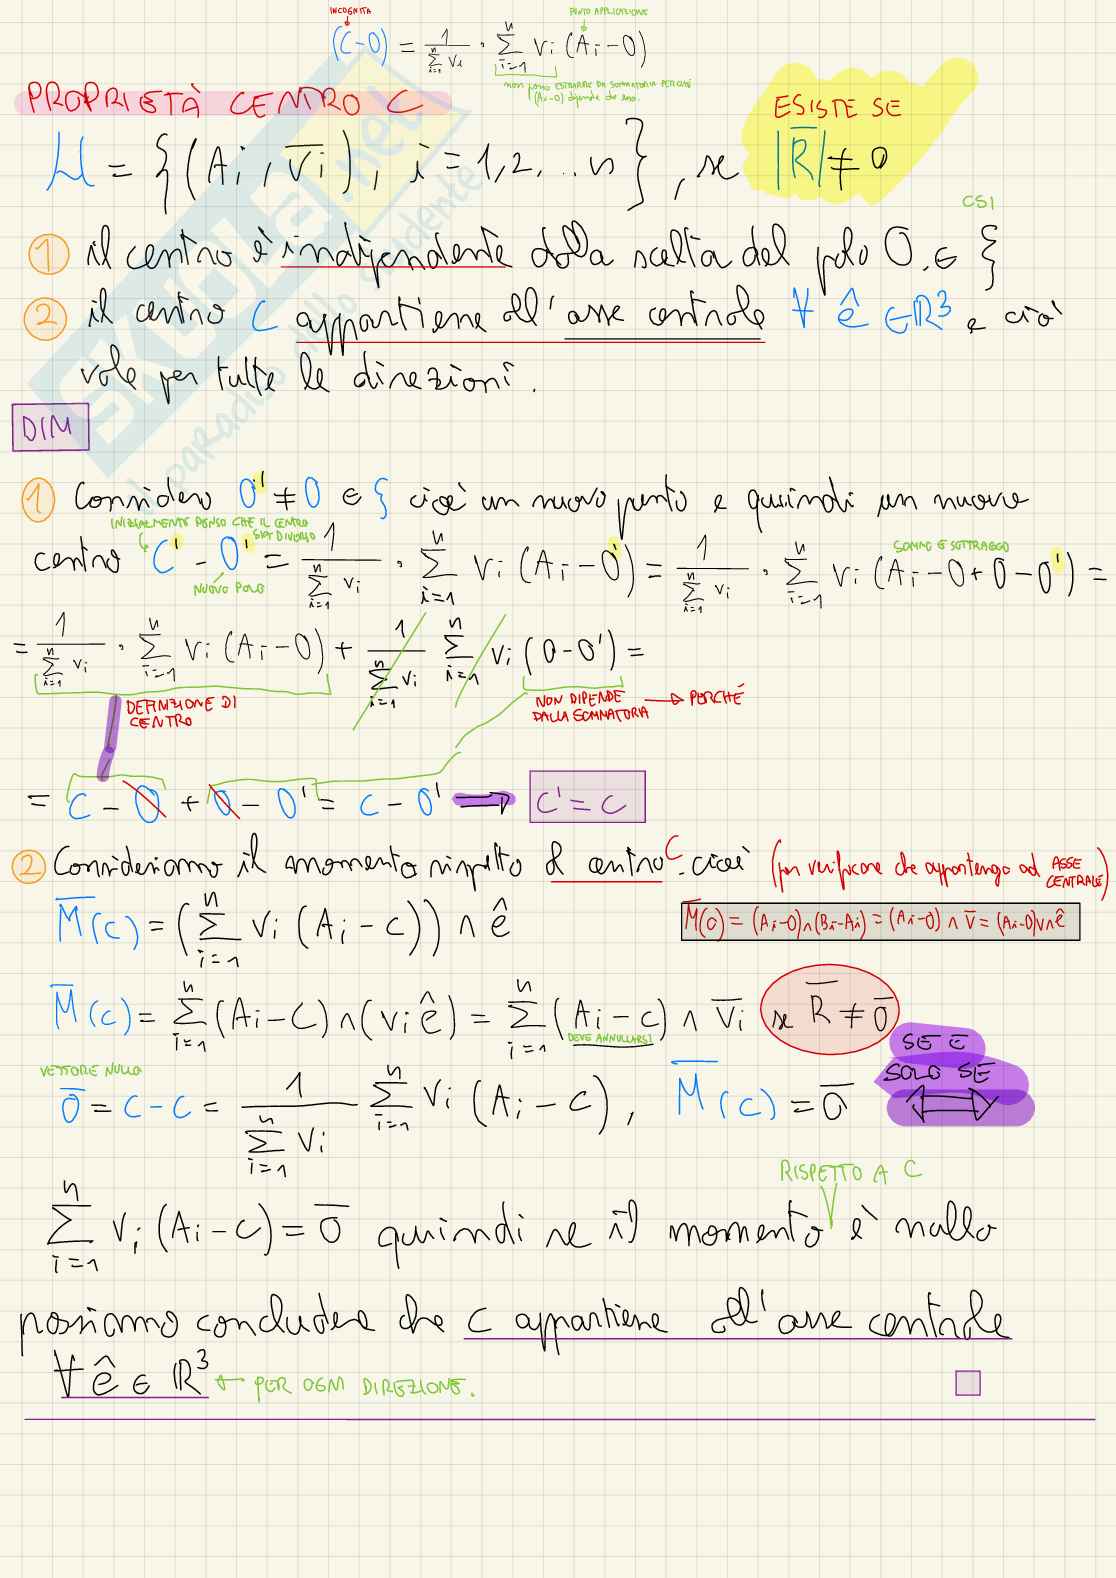 INCOGNITA
PUNTO APPLICAZIONE
(C-O) = 1/(∑_{i=1}^{n} vi) · ∑_{i=1}^{n} vi (Ai-O)
non posso estrarre da sommatoria perché
(Ai-O) dipende da essa.
PROPRIETÀ CENTRO C
ESISTE SE
U = {(Ai, v̄i), i = 1,2,...n}, se |R̄| ≠ 0
CSI
① il centro è indipendente dalla scelta del polo O. ∈ ξ
② il centro C appartiene all'asse centrale ∀ ê ∈ ℝ³ e ciò
vale per tutte le direzioni.
DIM
① Considero O' ≠ O ∈ ξ cioè un nuovo punto e quindi un nuovo
INIZIALMENTE PENSO CHE IL CENTRO
SIA DIVERSO
SOMMO E SOTTRAGGO
centro C' - O' = 1/(∑_{i=1}^{n} vi) · ∑_{i=1}^{n} vi (Ai-O') = 1/(∑_{i=1}^{n} vi) · ∑_{i=1}^{n} vi (Ai-O+O-O') =
NUOVO POLO
= 1/(∑_{i=1}^{n} vi) · ∑_{i=1}^{n} vi (Ai-O) + 1/(∑_{i=1}^{n} vi) ∑_{i=1}^{n} vi (O-O') =
DEFINIZIONE DI
CENTRO
NON DIPENDE
DALLA SOMMATORIA → PERCHÉ
= C - O + O - O' = C - O' → C' = C
② Consideriamo il momento rispetto al centro C. cioè (per verificare che appartenga ad ASSE
CENTRALE)
M̄(c) = (∑_{i=1}^{n} vi (Ai-c)) ∧ ê
M̄(o) = (Ai-O)∧(Bi-Ai) = (Ai-O) ∧ v̄ = (Ai-O)v∧ê
M̄(c) = ∑_{i=1}^{n} (Ai-C)∧(vi ê) = ∑_{i=1}^{n} (Ai-c) ∧ v̄i se R̄ ≠ ō
DEVE ANNULLARSI
SE E
SOLO SE
VETTORE NULLO
ō = C-C = 1/(∑_{i=1}^{n} vi) ∑_{i=1}^{n} vi (Ai-C), M̄(c) = ō ⟺
RISPETTO A C
∑_{i=1}^{n} vi (Ai-c) = ō quindi se il momento è nullo
possiamo concludere che C appartiene all'asse centrale
∀ ê ∈ ℝ³ ← PER OGNI DIREZIONE.